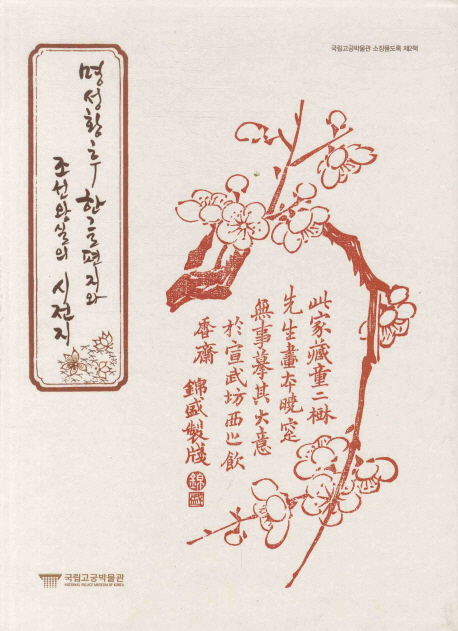 국립고궁박물관 소장품도록 제2책
명성황후 한글편지와
조선왕실의 시전지
此家藏童二樹
先生畫本曉窓
無事摹其大意
於宣武坊西之飮
香齋 錦盛製牋
錦盛
국립고궁박물관
NATIONAL PALACE MUSEUM OF KOREA